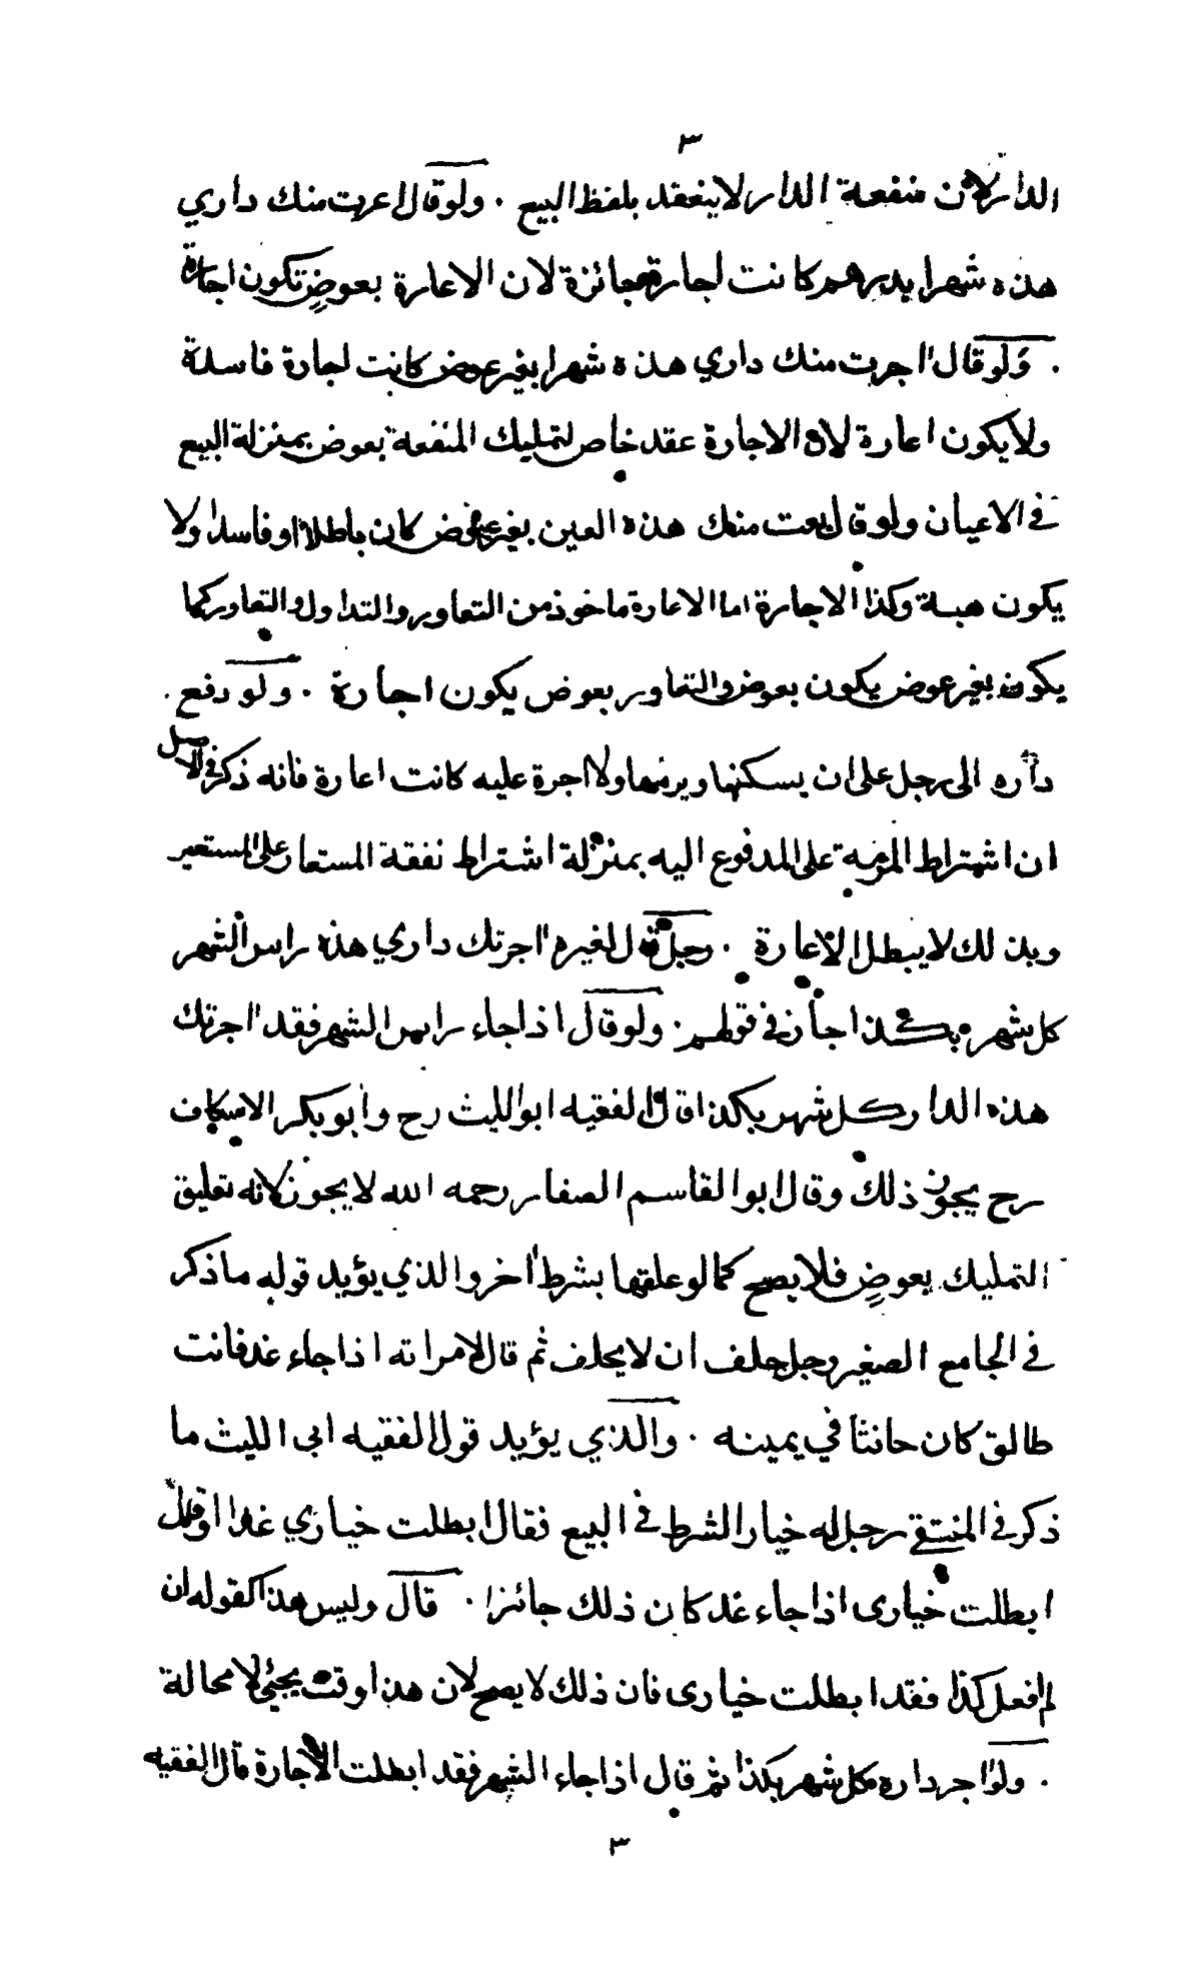 ٣
الدار لان منفعة الدار لا ينعقد بلفظ البيع . ولو قال اعرت منك داري
هذه شهرا بدرهم كانت اجارة جائزة لان الاعارة بعوضٍ تكون اجارة
. ولو قال اجرت منك داري هذه شهرا بغير عوض كانت اجارة فاسدة
ولا يكون اعارة لان الاجارة عقد خاص لتمليك المنفعة بعوض بمنزلة البيع
في الاعيان ولو قال بعت منك هذه العين بغير عوض كان باطلا او فاسدا ولا
يكون هبة وكذا الاجارة اما الاعارة ماخوذ من التعاور والتداول والتعاور كما
يكون بغير عوض يكون بعوض والتعاور بعوض يكون اجارة . ولو دفع .
داره الى رجل على ان يسكنها ويرمها ولا اجرة عليه كانت اعارة فانه ذكر في الاصل
ان اشتراط المرمة على المدفوع اليه بمنزلة اشتراط نفقة المستعار على المستعير
وبذلك لا يبطل الاعارة . رجل قال لغيره اجرتك داري هذه راس الشهر
كل شهر بكذا جاز في قولهم . ولو قال اذا جاء راس الشهر فقد اجرتك
هذه الدار كل شهر بكذا قال الفقيه ابو الليث رح وابو بكر الاسكاف
رح يجوز ذلك وقال ابو القاسم الصفار رحمه الله لا يجوز لانه تعليق
التمليك بعوضٍ فلا يصح كما لو علقها بشرط اخر والذي يؤيد قوله ما ذكر
في الجامع الصغير رجل حلف ان لا يحلف ثم قال لامراته اذا جاء غد فانت
طالق كان حانثا في يمينه . والذي يؤيد قول الفقيه ابى الليث ما
ذكر في المنتقى رجل له خيار الشرط في البيع فقال ابطلت خياري غدا او قال
ابطلت خيارى اذا جاء غد كان ذلك جائزا . قال وليس هذا كقوله ان
لم افعل كذا فقد ابطلت خيارى فان ذلك لا يصح لان هذا وقت يجئ لا محالة
. ولو اجر داره كل شهر بكذا ثم قال اذا جاء الشهر فقد ابطلت الاجارة قال الفقيه
٣